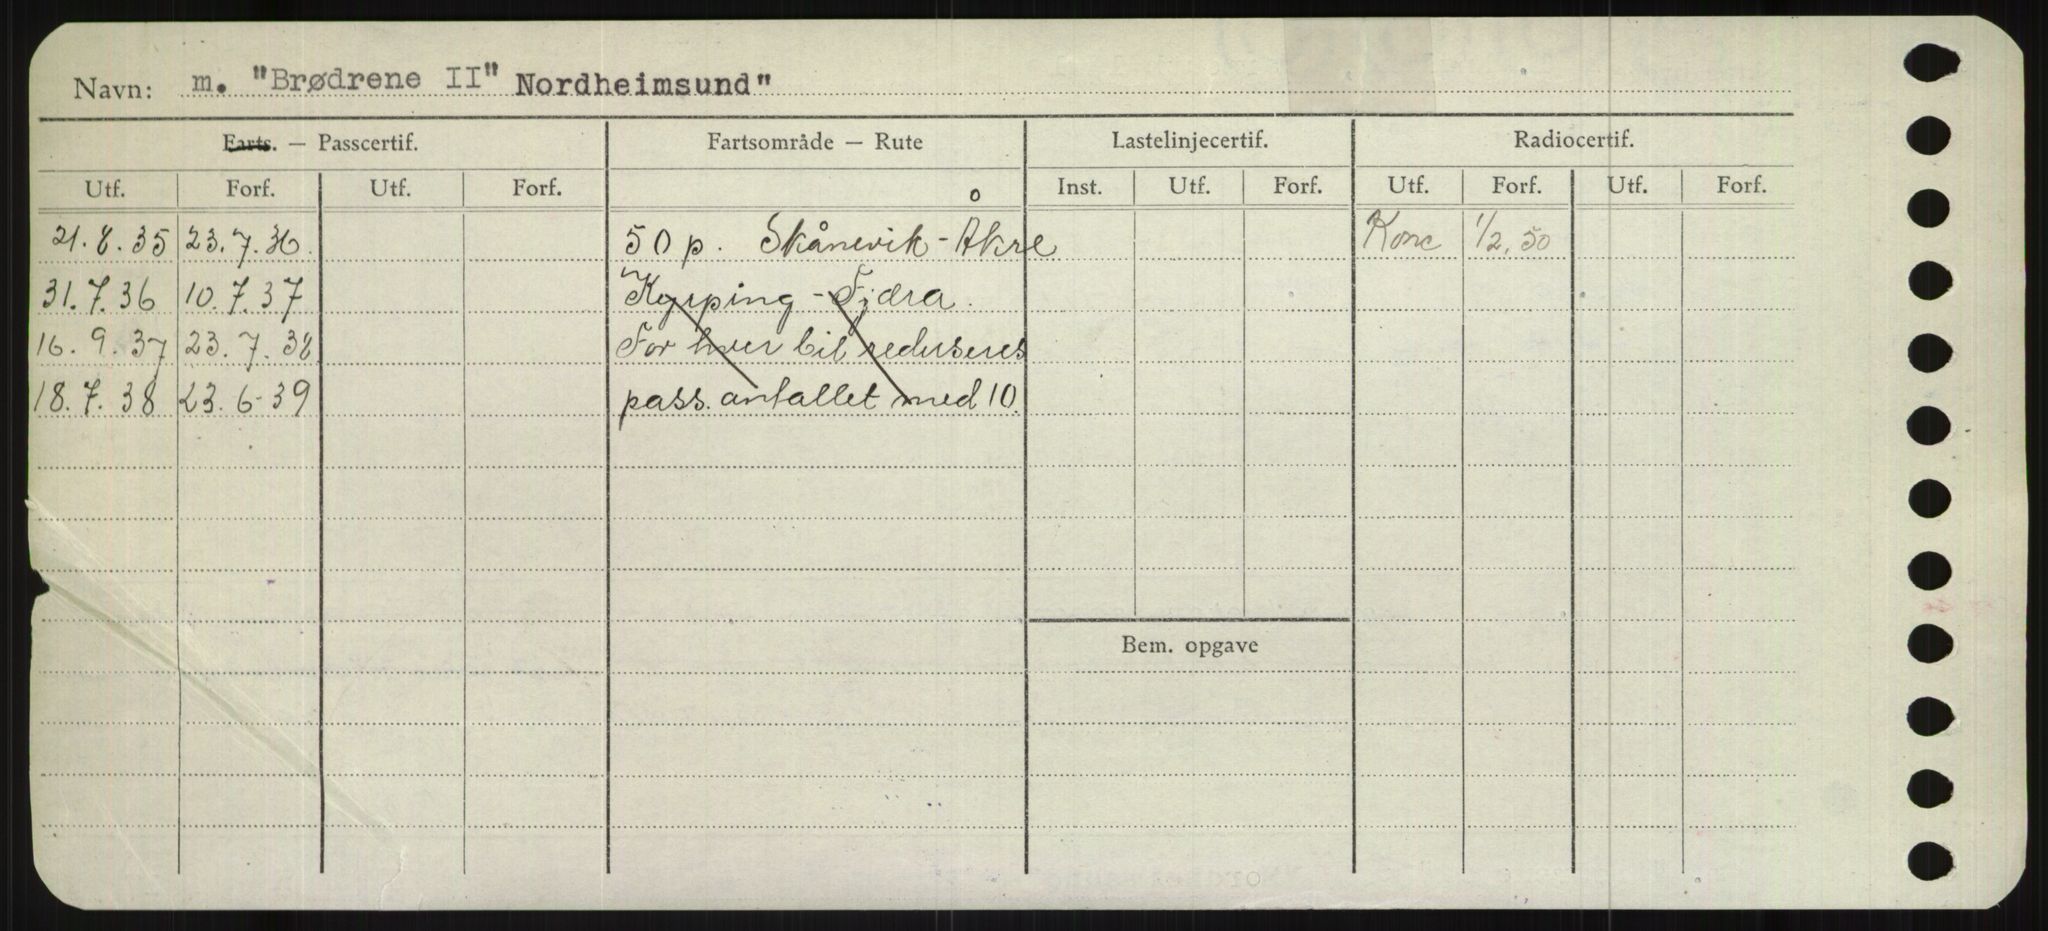 Navn: m. "Brødrene II" Nordheimsund"
Farts. — Passcertif. Fartsområde — Rute Lastelinjecertif. Radiocertif.
Utf. Forf. Utf. Forf. Inst. Utf. Forf. Utf. Forf. Utf. Forf.
21.8.35 23.7.36. 50 p. Skånevik - Åkre Konc 1/2.50
31.7.36 10.7.37 Kyrping - Fjæra.
16.9.37 23.7.38 For hver bil reduseres
18.7.38 23.6-39 pass. antallet med 10.
Bem. opgave